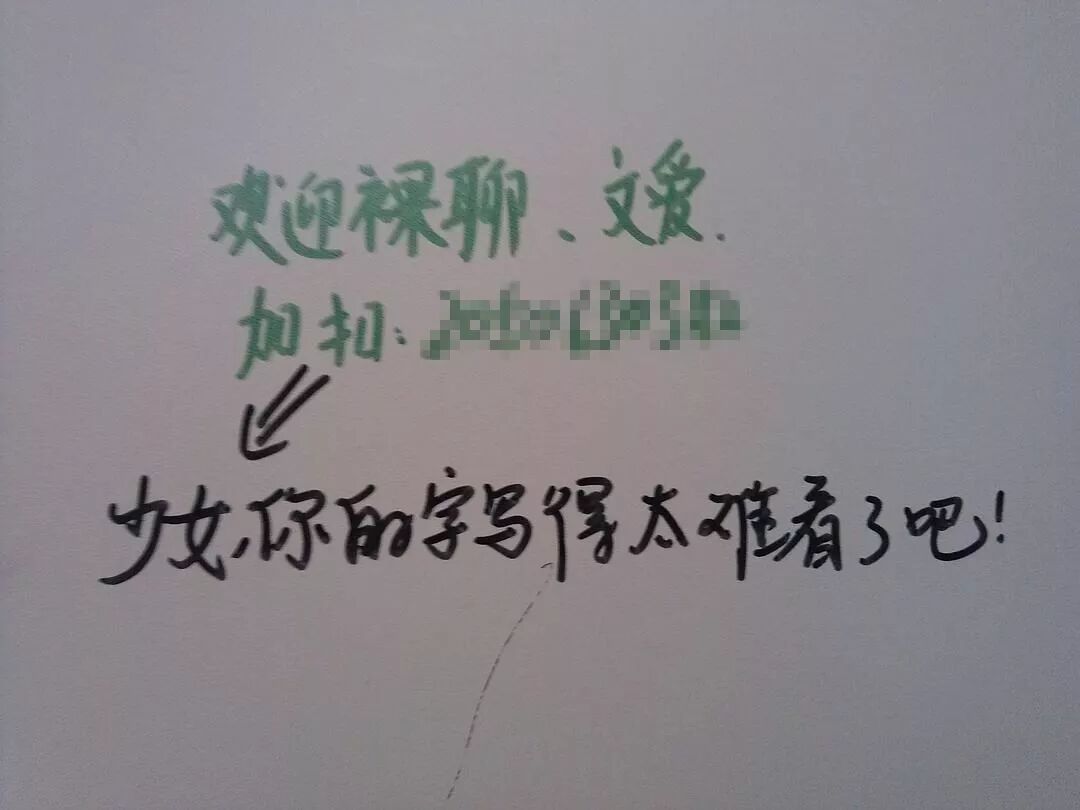 欢迎裸聊、文爱.
加扣:
少女,你的字写得太难看了吧!